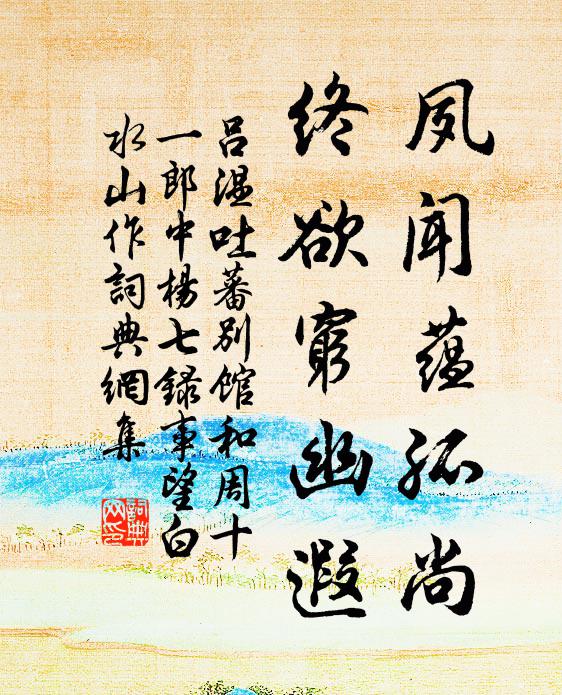 夙闻蕴孤尚
终欲窮幽遐
吕温吐蕃别馆和周十
一郎中楊七録事望白
水山作詞典網集